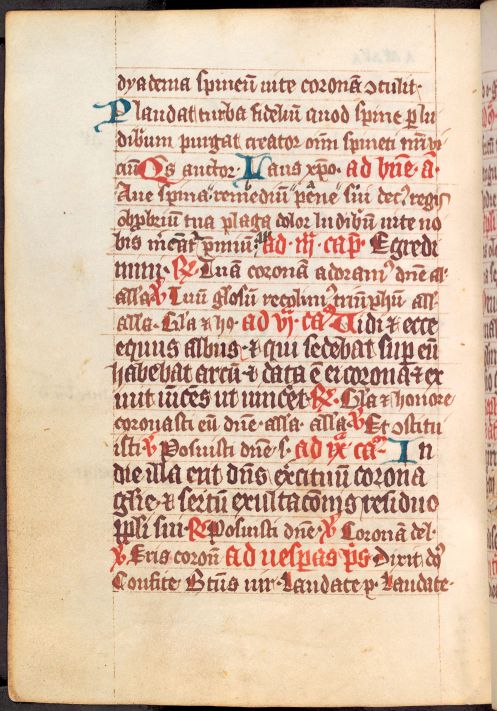 dyadema spineū vite coronā ↄtulit·
Plaudat turba fideliū quod spine p̲ lu
dibrium purgat creator om̄ spineti nr̄i vi
ciū Q̄s auctor· Laus xp̄o· ad bn̄e· a·
Aue spina remediū pēne sui decꝰ regis
obprbriū tua plaga dolor ludibriū vite no
bis incāt p̄miū· all̄ ad· iij· cap̄· Egredi
mini· ℟ Tuā coronā adoramꝰ dn̄e al·
alla ℣ Tuū gl̄osū recolimꝰ triūphū all·
alla· Gl̄a ⁊ ho· ad vj· caᵐ Uidi ⁊ ecce
equus albus· ⁊ qui sedebat sup̲ eū
habebat arcū· ⁊ data ē ei corona ⁊ ex
iuit vīces ut uincet· ℟· Gl̄a ⁊ honore
coronasti eū dn̄e· alla· alla ℣ Et ↄstitu
isti ℣ Posuisti dn̄e s· ad ix caᵐ In
die illa erit dn̄s excituū corona
gl̄ie· ⁊ sertū exultac̄onis residuo
pp̄li sui· ℟ Posuisti dn̄e ℣ Coronā de l·
℣ Eris coron̄ ad uesp̲as p̄s Dixit dō
Confite Btūs vir· Laudate p· Laudate·